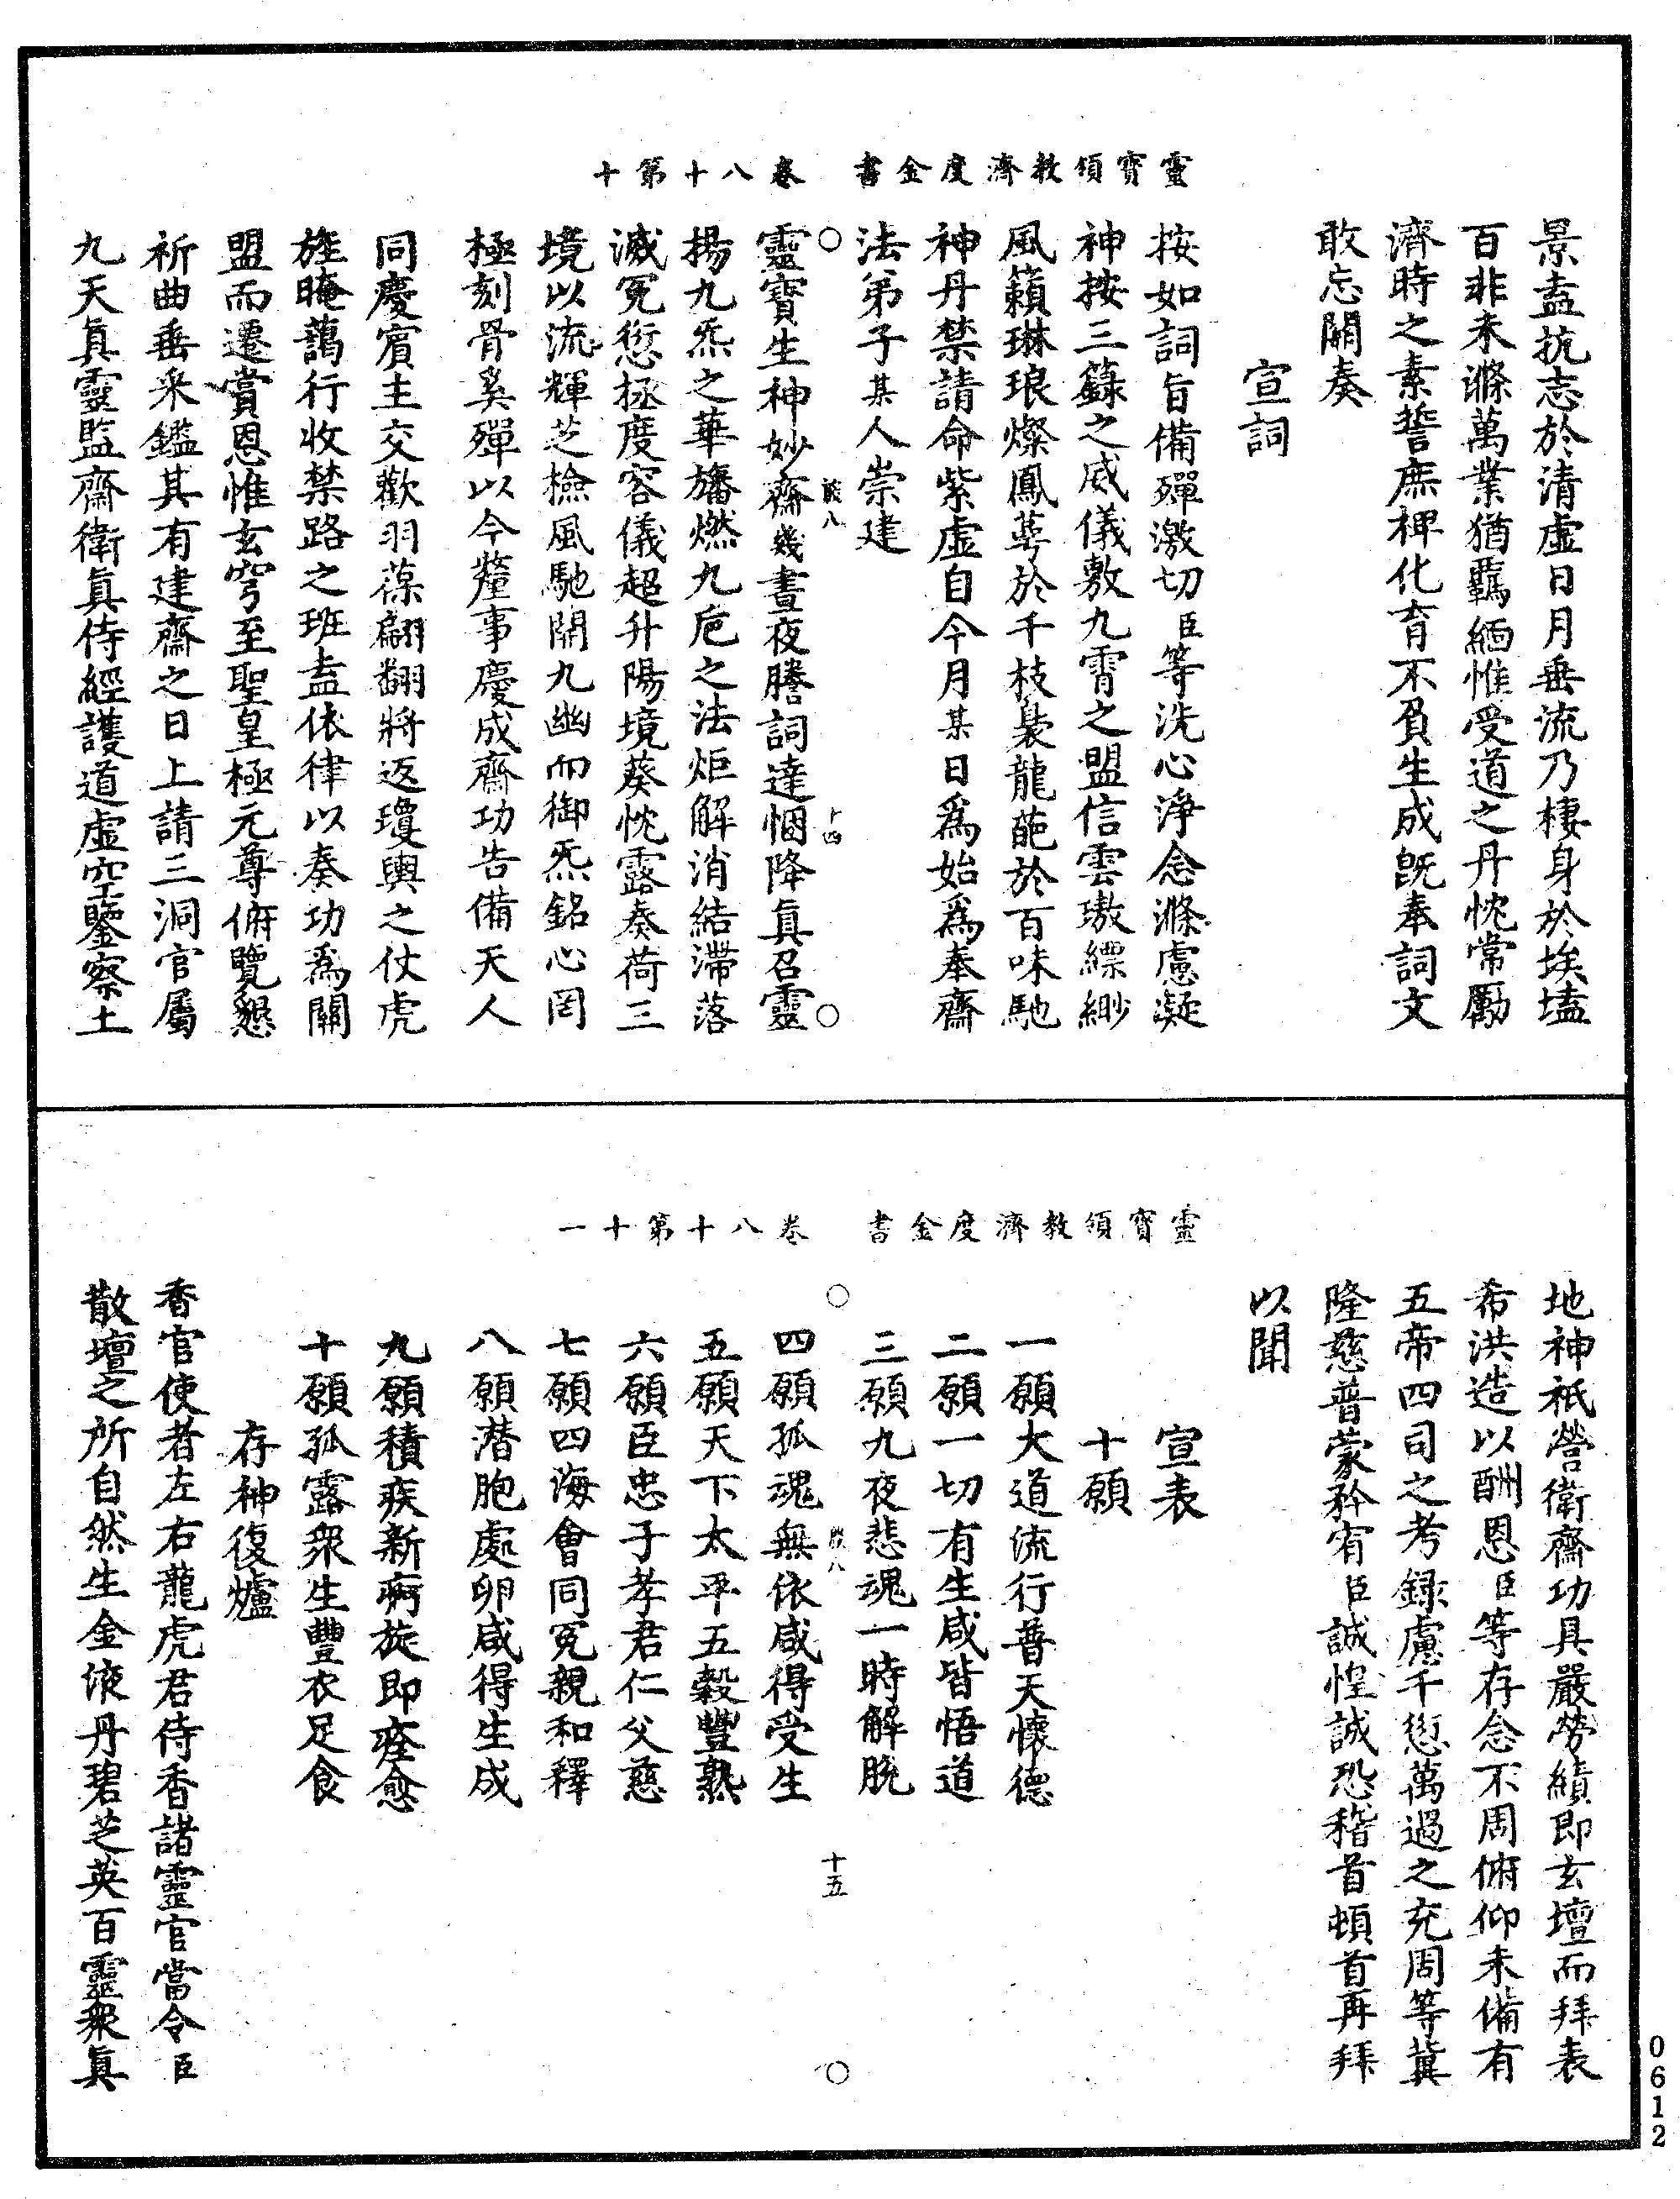 靈寶領教濟度金書　卷八十第十
景盍抗志於清虛日月垂流乃棲身於埃壒
百非未滌萬業猶羈緬惟受道之丹忱常勵
濟時之素誓庶裨化育不負生成旣奉詞文
敢忘關奏
宣詞
按如詞旨備殫激切臣等洗心淨念滌慮凝
神按三籙之威儀敷九霄之盟信雲璈縹緲
風籟琳琅燦鳳蕚於千枝裊龍葩於百味馳
神丹禁請命紫虛自今月某日爲始爲奉齋
法弟子某人崇建
八　十四
靈寶生神妙齋幾晝夜謄詞達悃降眞召靈
揚九炁之華旛燃九卮之法炬解消結滯落
滅冤愆拯度容儀超升陽境葵忱露奏荷三
境以流輝芝檢風馳開九幽而御炁銘心罔
極刻骨奚殫以今釐事慶成齋功告備天人
同慶賓主交歡羽葆翩翻將返瓊輿之仗虎
旌晻藹行收禁路之班盍依律以奏功爲關
盟而遷賞恩惟玄穹至聖皇極元尊俯覽懇
祈曲垂釆鑑其有建齋之日上請三洞官屬
九天眞靈監齋衛眞侍經護道虛空鑒察土
靈寶領教濟度金書　卷八十第十一
地神祇營衛齋功具嚴勞績即玄壇而拜表
希洪造以酬恩臣等存念不周俯仰未備有
五帝四司之考録慮千愆萬過之充周等冀
隆慈普蒙矜宥臣誠惶誠恐稽首頓首再拜
以聞
宣表
十願
一願大道流行普天懷德
二願一切有生咸皆悟道
三願九夜悲魂一時解脫
八　十五
四願孤魂無依咸得受生
五願天下太平五穀豐熟
六願臣忠子孝君仁父慈
七願四海會同冤親和釋
八願潛胞處卵咸得生成
九願積疾新痾旋即痊愈
十願孤露衆生豐衣足食
存神復爐
香官使者左右龍虎君侍香諸靈官當令臣
散壇之所自然生金液丹碧芝英百靈衆眞
0612